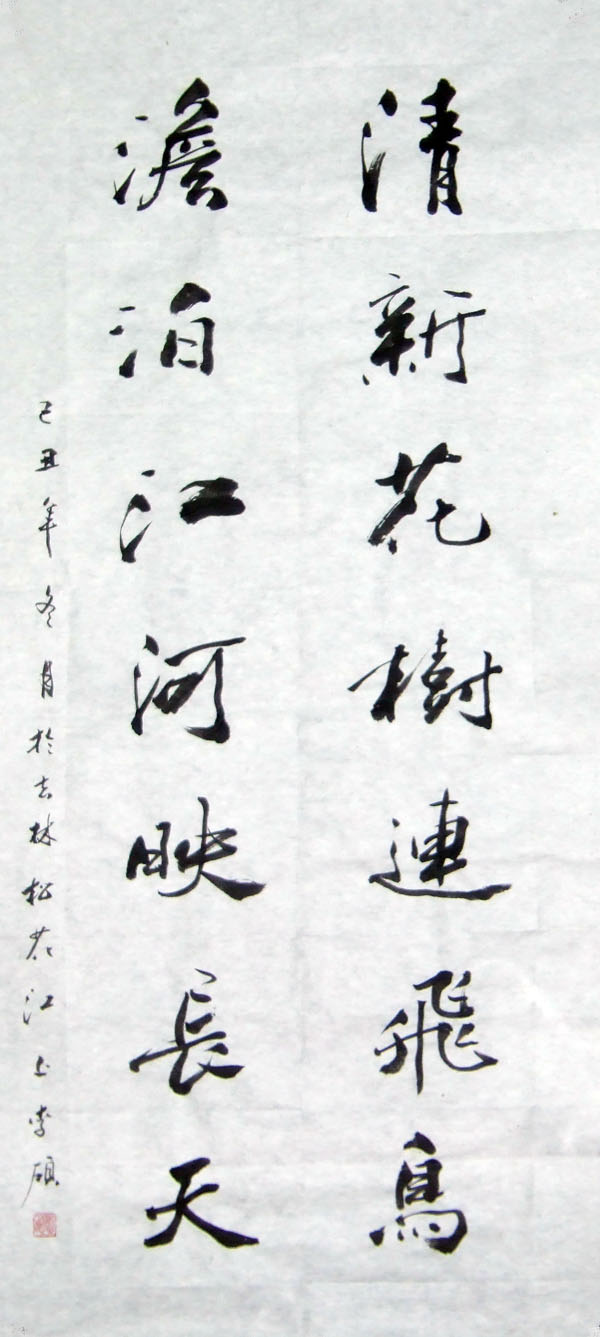 清新花樹連飛鳥
澹泊江河映長天
己丑年冬月於吉林松花江上李碩